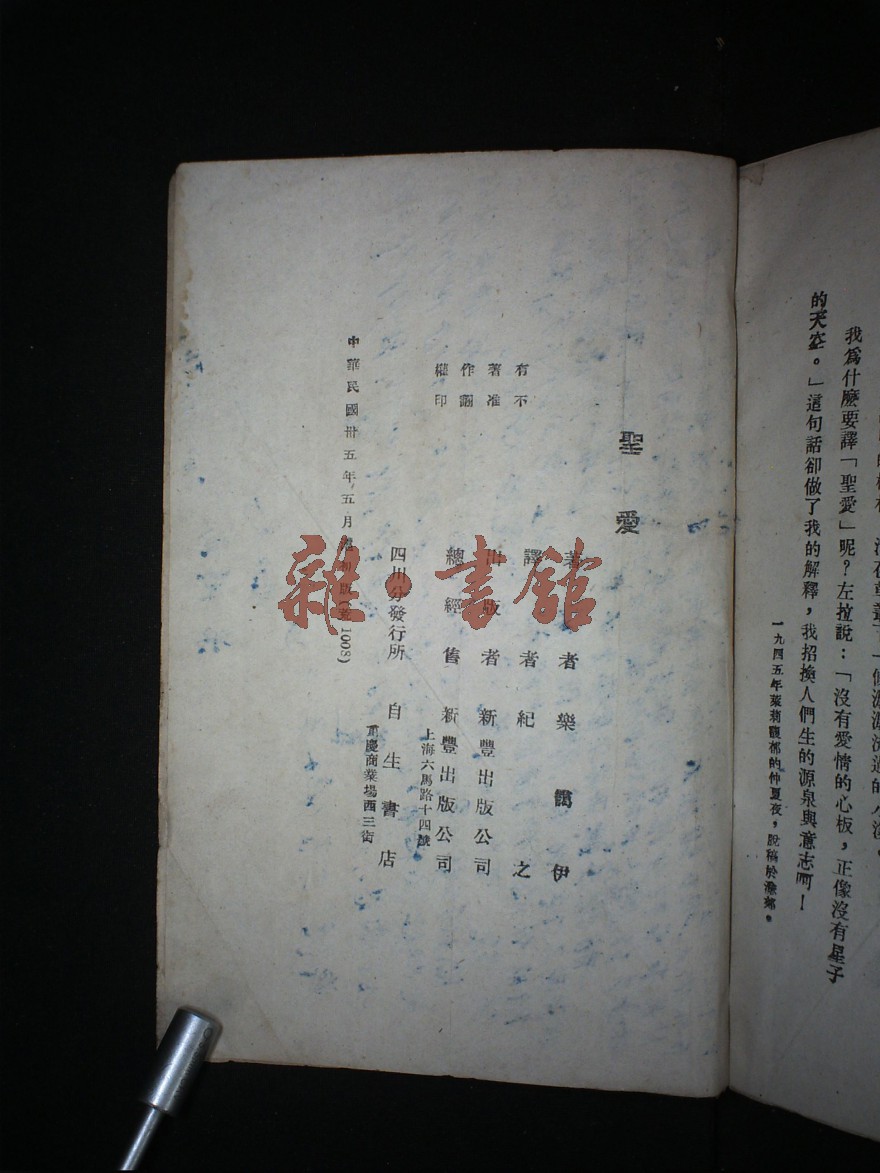 的天空。」這句話卻做了我的解釋，我招換人們生的源泉與意志啊！
我爲什麽要譯「聖愛」呢？左拉說：「沒有愛情的心板，正像沒有星子
一九四五年茉莉飄郁的仲夏夜，脫稿於滁鄉。
聖愛
有不
著准
作翻
權印
著者樂靄伊
譯者紀之
出版者新豐出版公司
總經售新豐出版公司
上海六馬路十四號
四川分發行所自生書店
重慶商業場西三街
中華民國卅五年五月初版
1008)
雜·書館